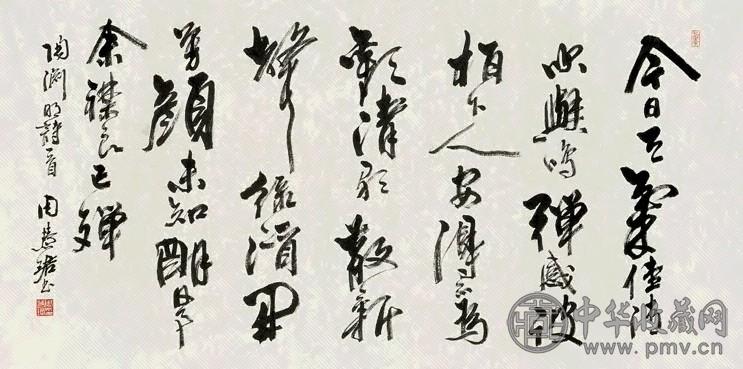 今日天氣佳清
吹與鳴彈感彼
柏下人安得不為
歡清歌散新
聲綠酒開
芳顏未知明日事
余襟良已殫
陶淵明詩一首 周慧珺書
中华收藏网
www.pmv.cn